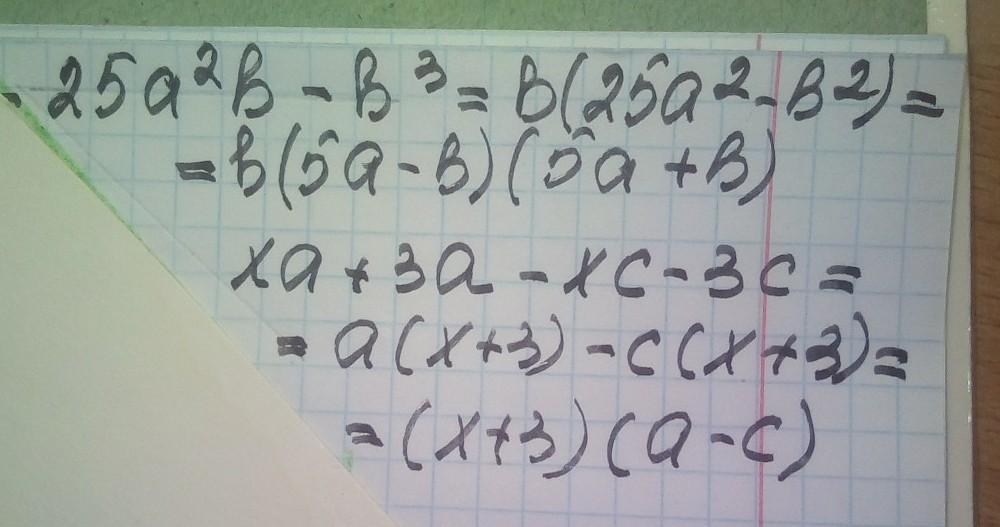 25a²b - b³ = b(25a² - b²) =
= b(5a - b)(5a + b)
xa + 3a - xc - 3c =
= a(x+3) - c(x+3) =
= (x+3)(a - c)